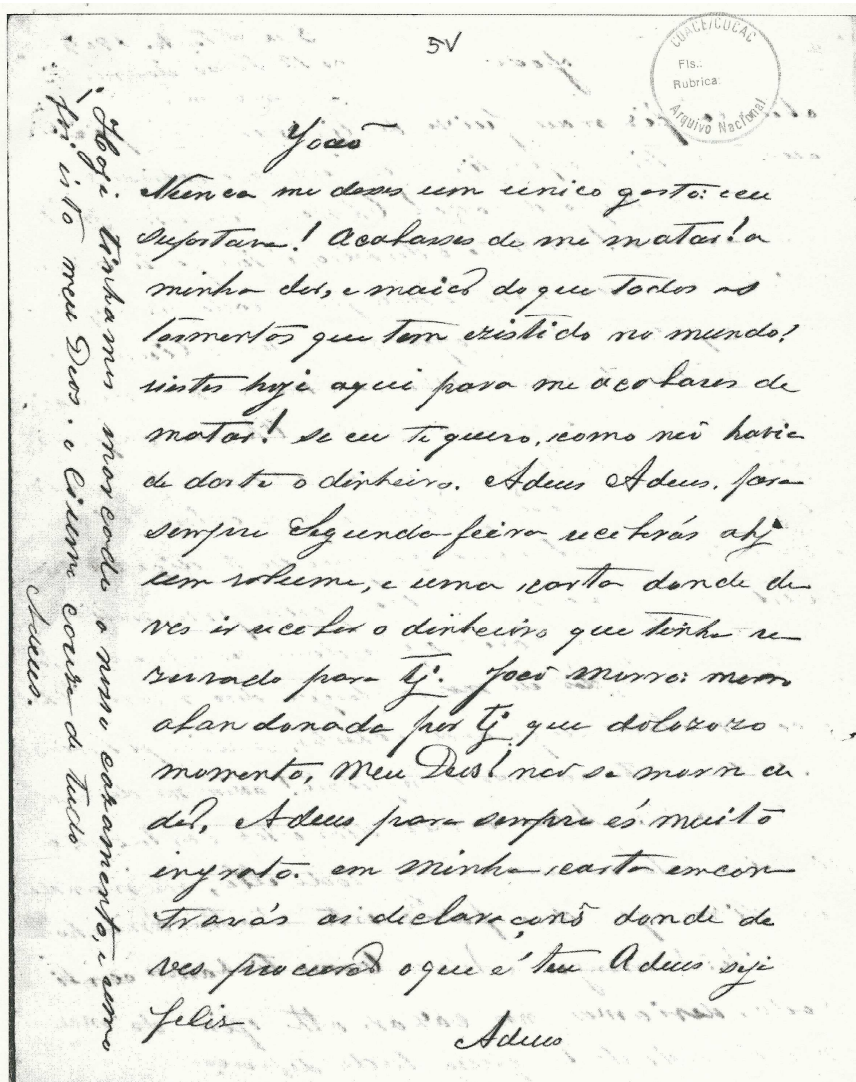 5V
COACE/CODAC
Fls.:
Rubrica:
Arquivo Nacional
João
Nunca me deses um unico gosto: eu
suportava! Acabasses de me matar! a
minha dor, e maior do que todos os
tormentos que tem ezistido no mundo?
viestes hoji aqui para me acabares de
matar! se eu te quero, como não havia
de darte o dinheiro. Adeus Adeus. para
sempre Segunda-feira receberás ahj
um volume, e uma carta donde de
ves ir receber o dinheiro que tenho re
zervado para tj. João morro: morro
abandonada por tj que dolorozo
momento, Meu Deus! não se morre de
dor, Adeus para sempre és muito
ingrato. em minha carta encon
travás as declaraçonš donde de
ves procurar o que é teu Adeus seji
feliz
Adeus
Hoji tinhamos marcado o nosso cazamento, e como
foi isto meu Deos. o Ciume couza de tudo
Adeus.